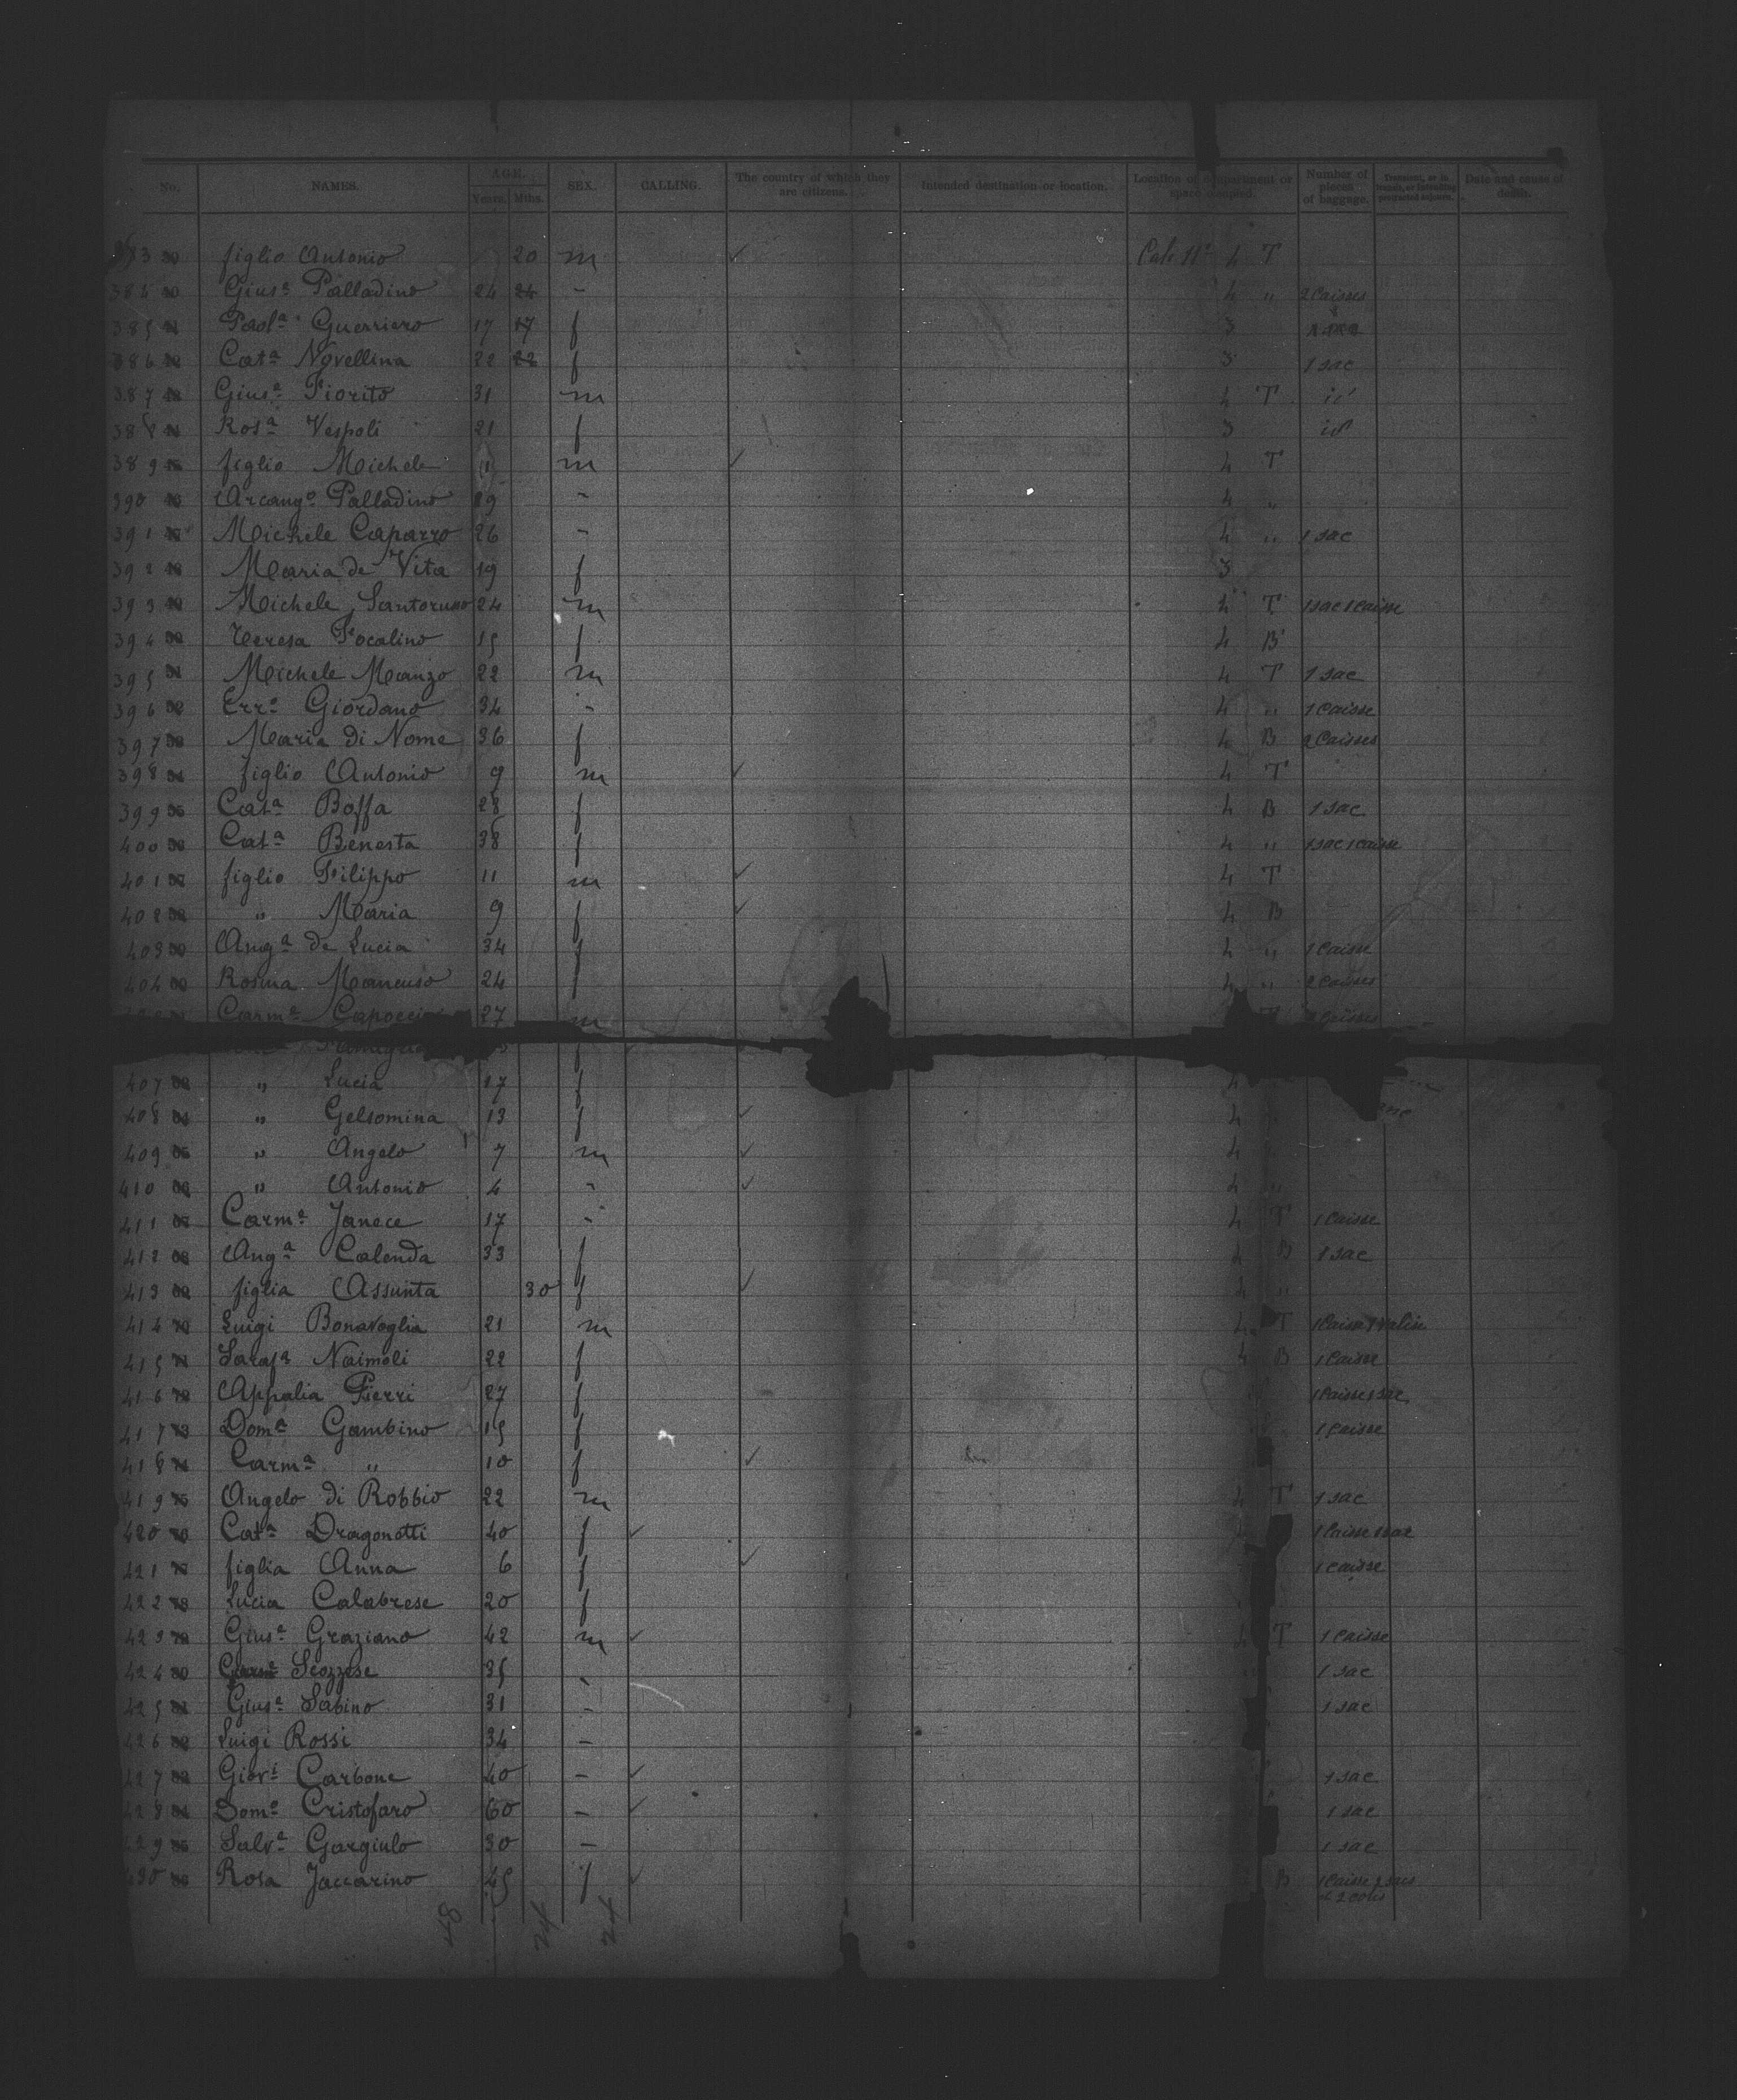 No. NAMES. AGE. Years. Mths. SEX. CALLING. The country of which they are citizens. Intended destination or location. Location of compartment or space occupied. Number of pieces of baggage. Transient, or in transit, or intending protracted sojourn. Date and cause of death.
383 figlio Antonio 20 m ✓ 4 T
384 Gius.e Palladino 24 24 - 4 " 2 Caisses
385 Paol.a Guerriero 17 17 f 3
386 Cat.a Novellina 22 22 f 3 1 sac
387 Gius.e Fiorito 31 m 4 T id
388 Ros.a Vespoli 21 f 3 id
389 figlio Michele m ✓ 4 T
390 Arcang.o Palladino - 4 "
391 Michele Caparro 26 - 4 " 1 sac
392 Maria de Vita 19 f 3
393 Michele Santoruso 24 m 4 T 1 sac 1 caisse
394 Teresa Focalino 15 f 4 B
395 Michele Manzo 22 m 4 T 1 sac
396 Err.o Giordano 34 - 4 " 1 Caisse
397 Maria di Nome 36 f 4 B 2 Caisses
398 figlio Antonio 9 m ✓ 4 T
399 Cat.a Boffa 28 f 4 B 1 sac
400 Cat.a Benesta 38 f 4 " 1 sac 1 caisse
401 figlio Filippo 11 m ✓ 4 T
402 " Maria 9 f ✓ 4 B
403 Ang.a de Lucia 34 f 4 " 1 Caisse
404 Rosina Mancuso 24 f 4 " 2 Caisses
Carm.e 27 m
f
407 " Lucia 17 f 4
408 " Gelsomina 13 f ✓ 4
409 " Angelo 7 m ✓ 4
410 " Antonio 4 - ✓ 4 "
411 Carm.e Janece 17 - 4 T 1 Caisse
412 Ang.a Calenda 33 f 4 B 1 sac
413 figlia Assunta 30 f ✓ 4 "
414 Luigi Bonavoglia 21 m 4 T 1 Caisse 1 valise
415 Naimoli 22 f 4 B 1 Caisse
416 Appalia Pierri 27 f 1 Caisse 1 sac
417 Dom.a Gambino 15 f 1 Caisse
418 Carm.a " 10 f ✓
419 Angelo di Robbio 22 m 4 T 1 sac
420 Cat.a Dragonetti 40 f ✓ 1 Caisse 1 sac
421 figlia Anna 6 f ✓ 1 caisse
422 Lucia Calabrese 20 f
423 Gius.e Graziano 42 m ✓ 4 T 1 Caisse
424 Scozzese 35 - 1 sac
425 Gius.e Sabino 31 - 1 sac
426 Luigi Rossi 34 -
427 Giov.i Carbone 40 - ✓ 1 sac
428 Dom.o Cristofaro 60 - ✓ 1 sac
429 Salv.e Gargiulo 30 - 1 sac
430 Rosa Jaccarino 45 f ✓ B 1 Caisse